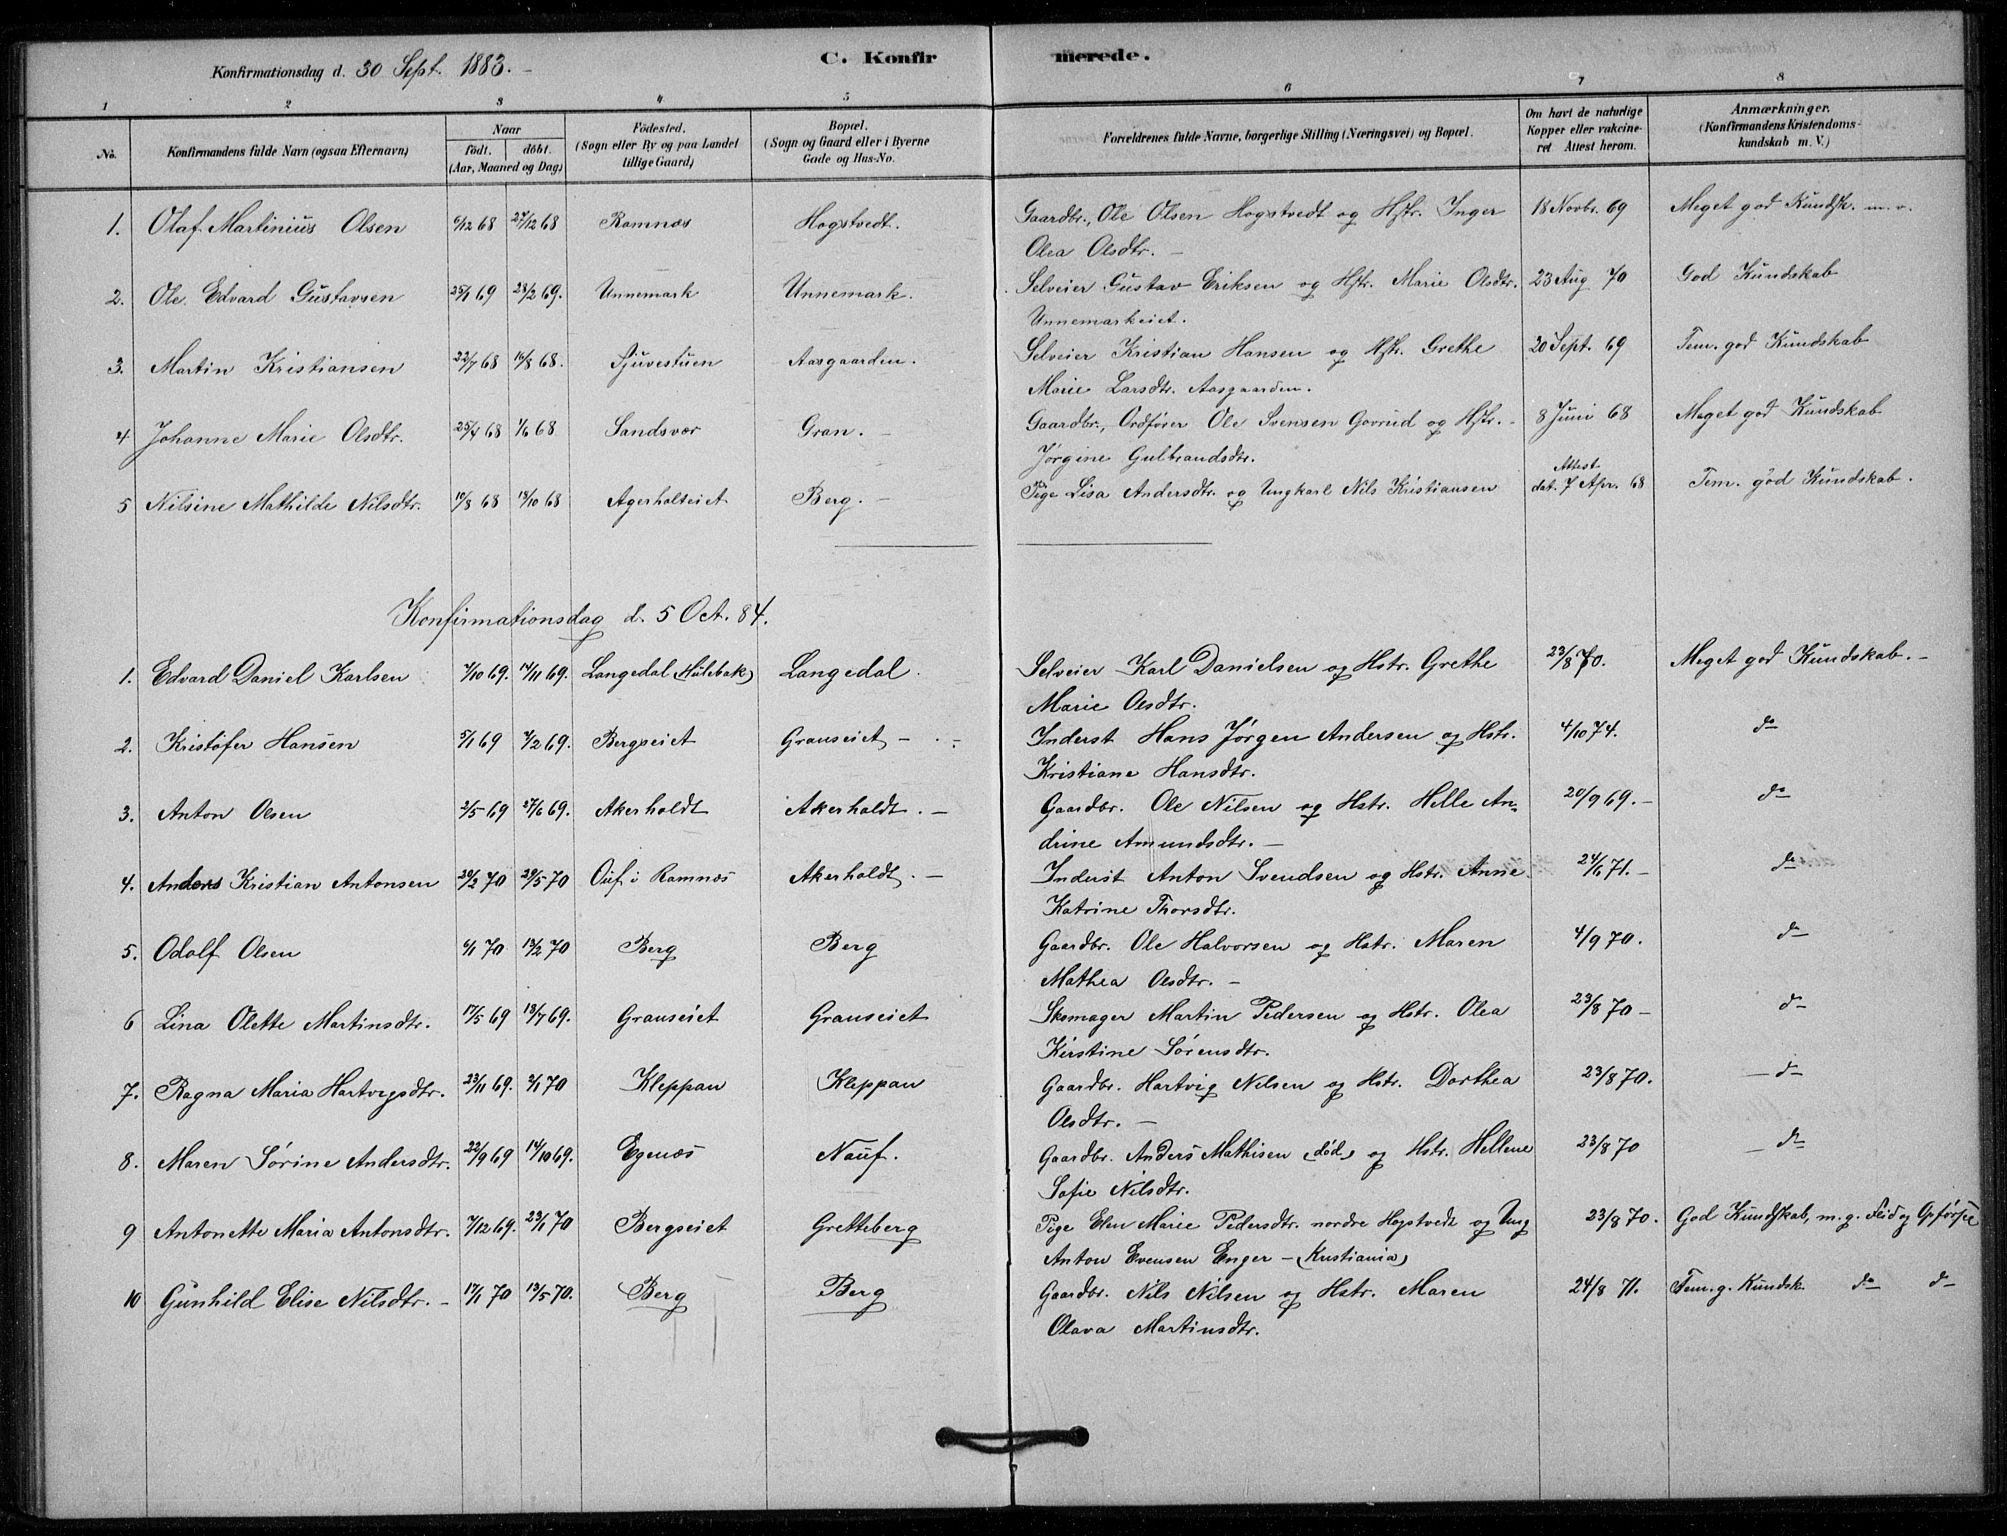 Konfirmationsdag d. 30 Sept. 1883. –
C. Konfirmerede.
1 2 3 4 5 6 7 8
No. Konfirmandens fulde Navn (ogsaa Efternavn) Naar født. døbt. (Aar, Maaned og Dag) Fødested. (Sogn eller By og paa Landet tillige Gaard) Bopæl. (Sogn og Gaard eller i Byerne Gade og Hus-No. Forældrenes fulde Navne, borgerlige Stilling (Næringsvei) og Bopæl. Om havt de naturlige Kopper eller vakcineret Attest herom. Anmærkninger. (Konfirmandens Kristendomskundskab m. V.)
1. Olaf Martinius Olsen 6/12 68 27/12 68 Ramnæs Hogstvedt. Gaardbr., Ole Olsen Hogstvedt og Hstr. Inger 18 Novbr. 69 Meget god Kundsk. m. v.
Olea Olsdtr. –
2. Ole Edvard Gustavsen 25/1 69 28/2 69. Unnemark Unnemark. Selveier Gustav Eriksen og Hstr. Marie Olsdtr. 23 Aug 70 God Kundskab
Unnemarkeiet.
3. Martin Kristiansen 22/7 68 16/8 68. Sjuvestuen Aasgaarden. Selveier Kristian Hansen og Hstr. Grethe 20 Sept. 69 Tem. god Kundskab
Marie Larsdtr. Aasgaarden.
4 Johanne Marie Olsdtr. 25/4 68 1/6 68 Sandsvær Gran. – Gaardbr., Ordfører Ole Svensen Govrud og Hstr. 8 Juni 68 Meget god Kundskab
Jørgine Gulbrandsdtr.
5 Nilsine Mathilde Nilsdtr. 10/8 68 18/10 68 Agerholteiet Berg. – Pige Lisa Andersdtr. og Ungkarl Nils Kristiansen Attest dat. 7 Apr. 68 Tem. god Kundskab.
Konfirmationsdag d. 5 Oct. 84.
1. Edvard Daniel Karlsen 7/10 69. 14/11 69. Langedal (Hulebak) Langedal. Selveier Karl Danielsen og Hstr. Grethe 23/8 70. Meget god Kundskab. –
Marie Olsdtr.
2. Kristofer Hansen 5/1 69 7/2 69. Bergseiet Granseiet – Inderst Hans Jørgen Andersen og Hstr. 4/10 74. do
Kristiane Hansdtr.
3. Anton Olsen 2/5 69 27/6 69. Akerholdt Akerholdt. – Gaardbr. Ole Nilsen og Hstr. Helle An= 20/9 69. – do
drine Amundsdtr. –
4. Anders Kristian Antonsen 20/2 70 29/5 70 Auf i Ramnæs Akerholdt. – Inderst Anton Svendsen og Hstr. Anne 24/6 71. – do
Katrine Thorsdtr.
5. Odolf Olsen 6/1 70 13/2 70 Berg Berg Gaardbr. Ole Halvorsen og Hstr. Maren 4/9 70. do
Mathea Olsdtr. –
6 Lina Olette Martinsdtr. 17/5 69 18/7 69. Granseiet Granseiet Skomager Martin Pedersen og Hstr. Olea 23/8 70 – do
Kirstine Sørensdtr.
7. Ragna Maria Hartvigsdtr. 23/11 69. 2/1 70 Kleppan Kleppan Gaardbr. Hartvig Nilsen og Hstr. Dorthea 23/8 70. – do
Olsdtr. –
8. Maren Sørine Andersdtr. 22/9 69 14/10 69. Egenæs Nauf. Gaardbr. Anders Mathisen (død) og Hstr. Hellene 23/8 70 – do
Sofie Nilsdtr.
9 Antonette Maria Antonsdtr. 7/12 69. 23/1 70 Bergseiet Gretteberg Pige Elen Marie Pedersdtr. nordre Hogstvedt og Ung 23/8 70. God Kundskab, m. g. Flid og Opførsel
Anton Evensen Enger – (Kristiania)
10 Gunhild Elise Nilsdtr. – 17/1 70 13/5 70. Berg Berg Gaardbr. Nils Nilsen og Hstr. Maren 24/8 71. Tem. g. Kundsk. do do
Olava Martinsdtr.